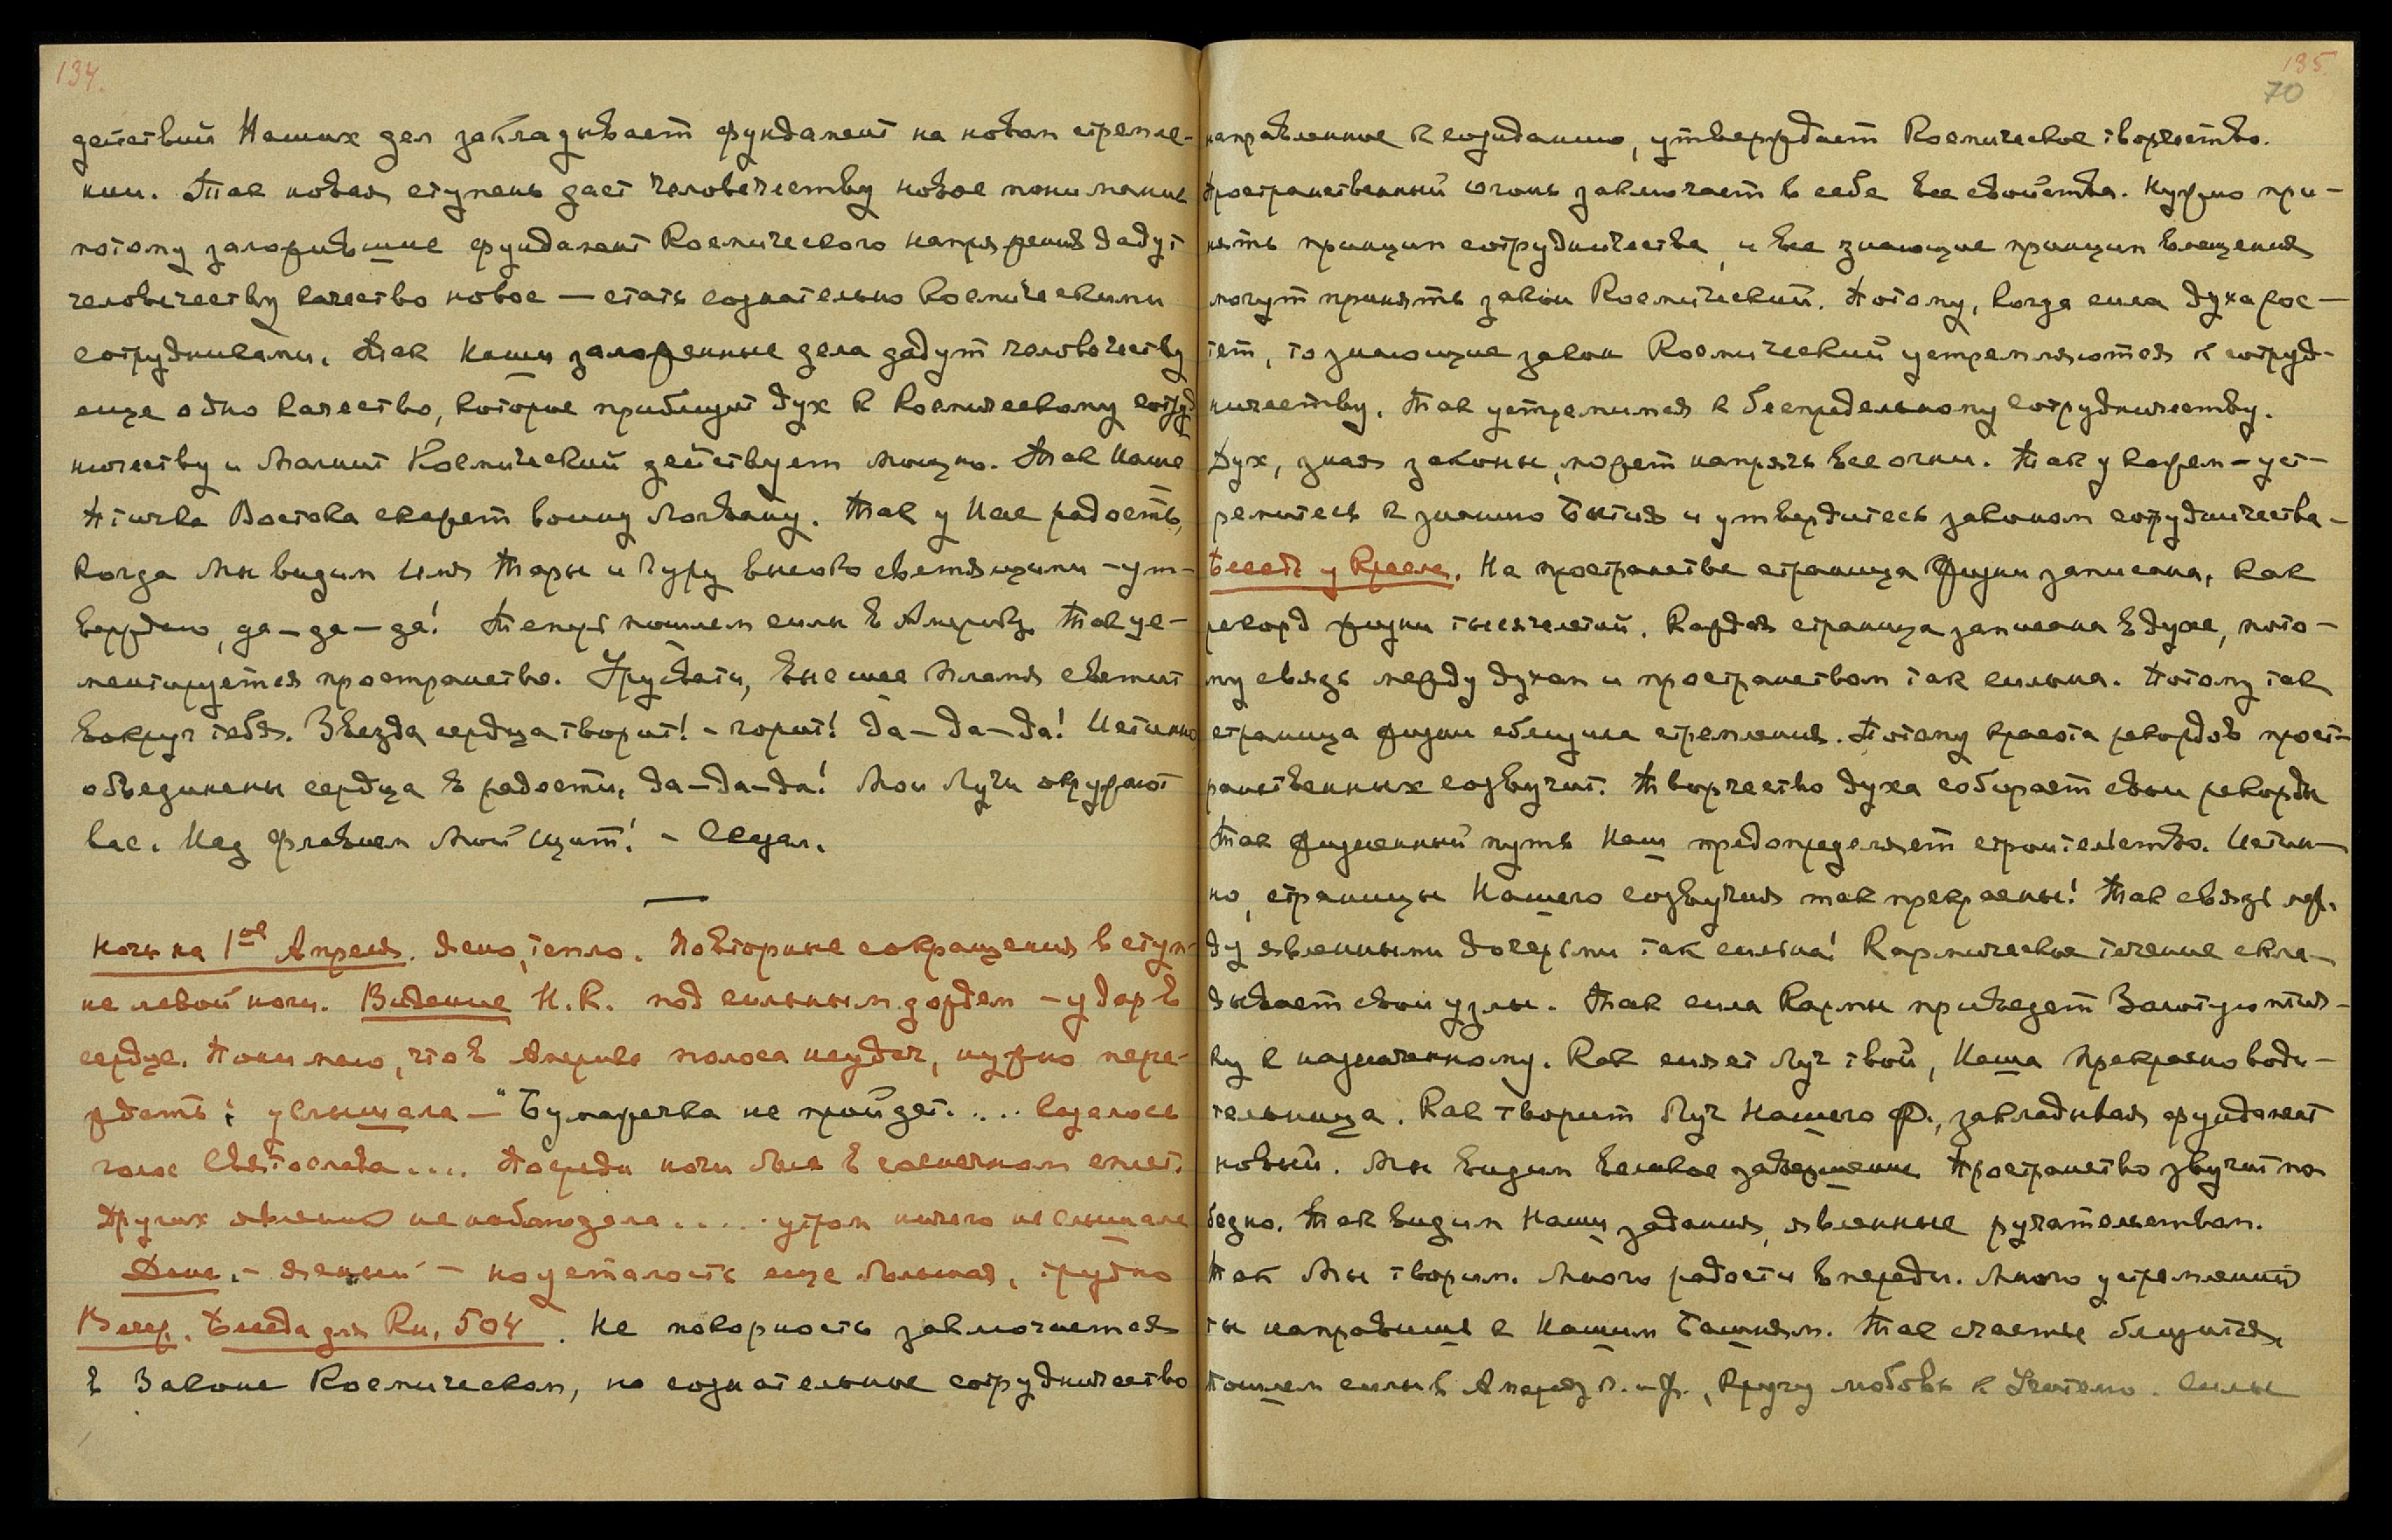 134.
действий Наших дел закладывает фундамент на новом стремле-
нии. Так новая ступень дает человечеству новое понимание
потому заложившие фундамент Космического напряжения дадут
человечеству качество новое — стать сознательно Космическими
сотрудниками. Так Наши заложенные дела дадут человечеству
еще одно качество, которое приблизит дух к Космическому сотруд
ничеству и Магнит Космический действует мощно. Так Наше
Птичка Востока скажет воину Ловзану. Так у Нас радость,
когда Мы видим имя Тары и Гуру высоко светящими — ут-
верждено, да — да — да! Теперь пошлем силы в Америку. Так це-
ментируется пространство. Урусвати, высшее пламя светит
вокруг тебя. Звезда сердца творит! — горит! Да — да — да! Истинно
объединены сердца в радости, да — да — да! Мои Лучи окружают
вас. Над Флавием Мой щит! — Сказал.
Ночь на 1ое Апреля. Ясно, тепло. Повторные сокращения в ступ-
не левой ноги. Видение Н.К. под сильным дождем — удар в
сердце. Понимаю, что в Америке полоса неудач, нужно пере-
ждать; услышала — "Бумажечка не пройдет.... казалось
голос Святослава.... Посреди ночи была в солнечном сплет.
Других явлений не наблюдала..... утром ничего не слышала
День. — ясный — но усталость еще большая, трудно
Вечер. Беседа для Кн. 504. Не покорность заключается
в Законе Космическом, но сознательное сотрудничество
135.
70
направленное к созиданию, утверждает Космическое творчество.
Пространственный огонь заключает в себе все свойства. Нужно при-
нять принцип сотрудничества, и все знающие принцип влечения
могут принять закон Космический. Потому, когда сила духа рас-
тет, то знающие закон Космический устремляются к сотруд-
ничеству. Так устремимся к беспредельному сотрудничеству.
Дух, зная законы, может напрячь все огни. Так укажем — уст-
ремитесь к знанию Бытия и утвердитесь законом сотрудничества —
Беседа у Кресла. На пространстве страница жизни записана, как
рекорд жизни тысячелетий. Каждая страница записана в духе, пото-
му связь между духом и пространством так сильна. Потому так
страница жизни сблизила стремления. Потому красота рекордов прост-
ранственных созвучит. Творчество духа собирает свои рекорды
Так жизненный путь Наш предопределяет строительство. Истин-
но, страницы Нашего созвучия так прекрасны! Так связь меж.
ду явленными дочерьми так сильна! Кармическое течение скла-
дывает свои узлы. Так сила Кармы приведет Золотую птич-
ку к назначенному. Как сияет Луч твой, Наша Прекрасноводи-
тельница. Как творит Луч Нашего Ф., закладывая фундамент
новый. Мы видим великое завершение Пространство звучит по
бедно. Так видим Наши задания, явленные ручательством.
Так Мы творим. Много радости впереди. Много устремлений
ты направишь к Нашим Башням. Так счастье близится,
Пошлем силы в Америку Л. и Ф., Кругу любовь к Учителю. Силы